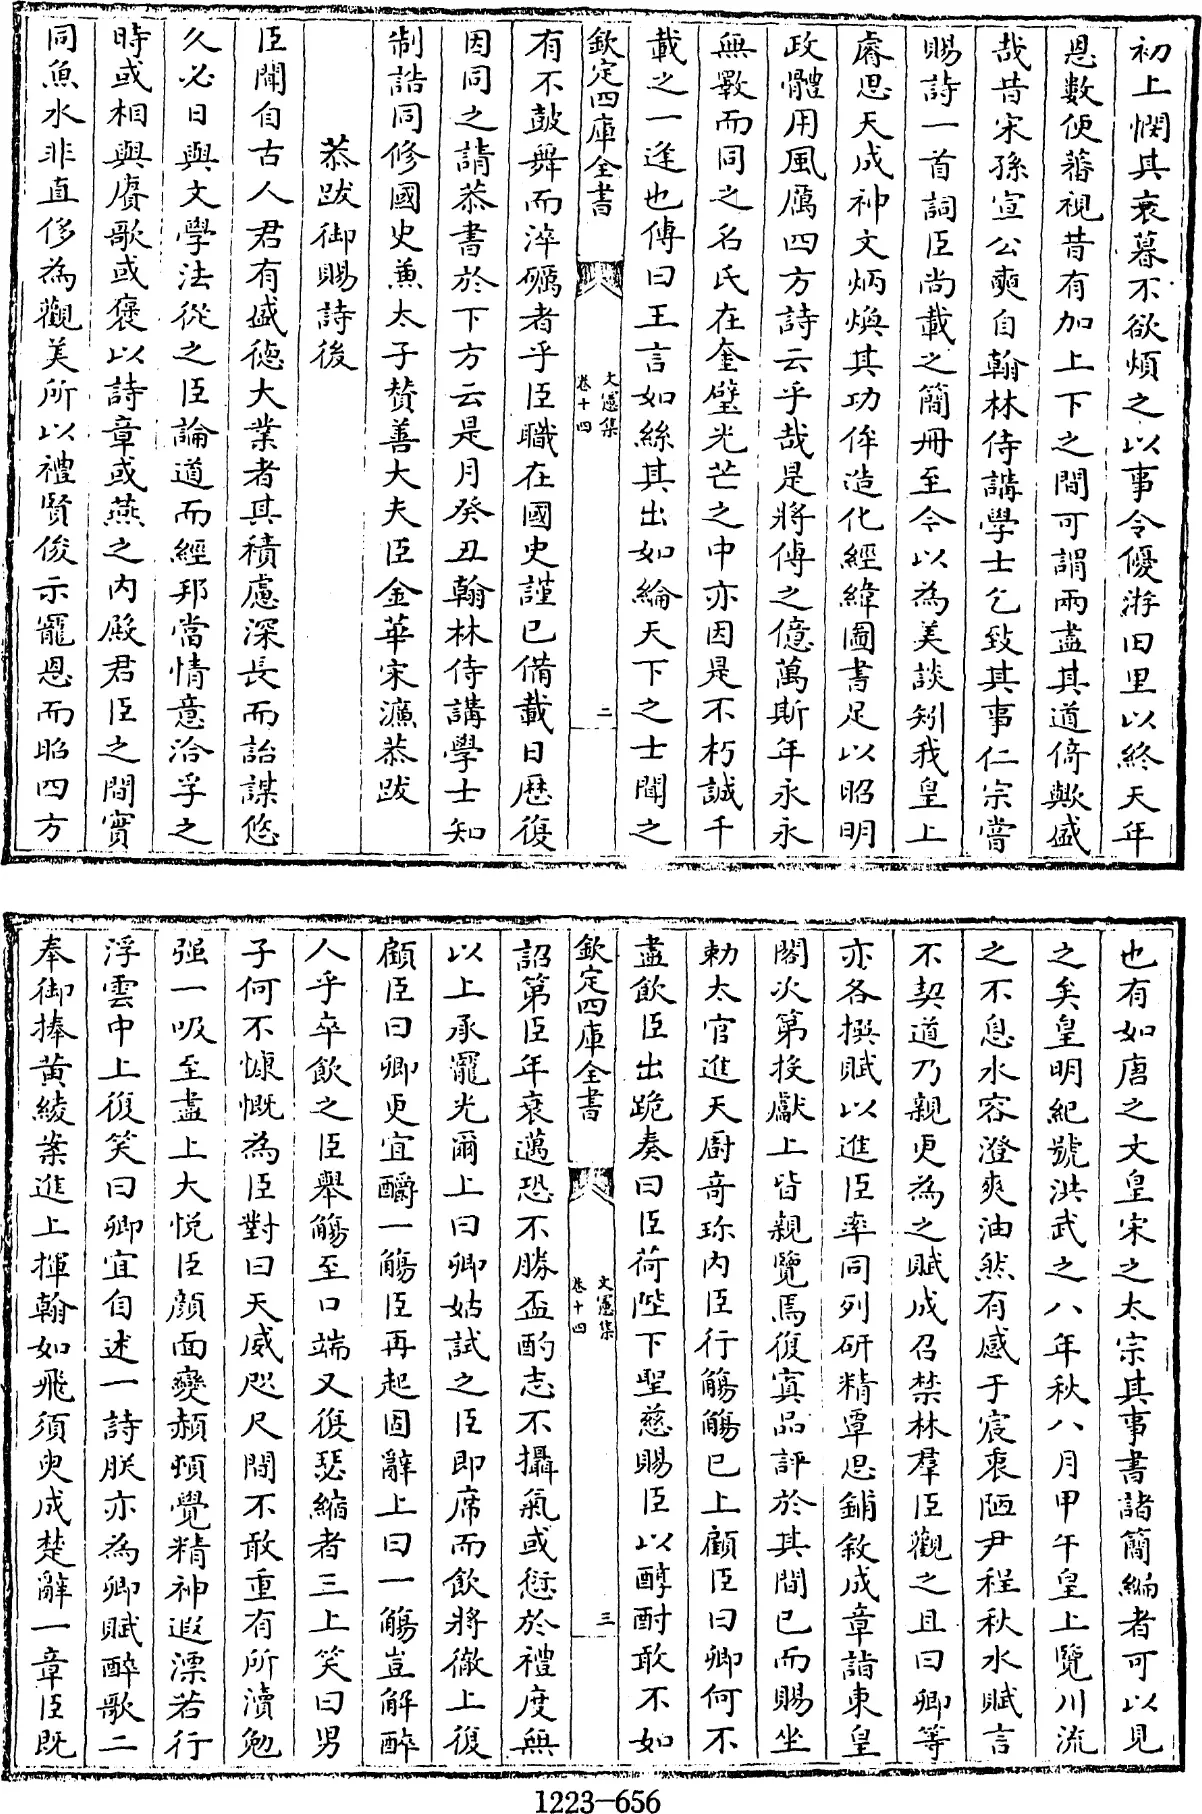 初上憫其衰暮不欲煩之以事令優游田里以終天年
恩數便蕃視昔有加上下之間可謂兩盡其道倚歟盛
哉昔宋孫宣公奭自翰林侍講學士乞致其事仁宗嘗
賜詩一首詞臣尚載之簡冊至今以為美談矧我皇上
睿思天成神文炳煥其功侔造化經緯圖書足以昭明
政體用風厲四方詩云乎哉是將傅之億萬斯年永永
無斁而同之名氏在奎璧光芒之中亦因是不朽誠千
載之一逢也傅曰王言如絲其出如綸天下之士聞之
欽定四庫全書
文憲集
卷十四
二
有不鼓舞而淬礪者乎臣職在國史謹已備載日歷復
因同之請恭書於下方云是月癸丑翰林侍講學士知
制誥同修國史兼太子贊善大夫臣金華宋濂恭跋
恭跋御賜詩後
臣聞自古人君有盛德大業者其積慮深長而詒謀悠
久必日與文學法從之臣論道而經邦當情意洽孚之
時或相與賡歌或褒以詩章或燕之內殿君臣之間實
同魚水非直侈為觀美所以禮賢俊示寵恩而昭四方
也有如唐之文皇宋之太宗其事書諸簡編者可以見
之矣皇明紀號洪武之八年秋八月甲午皇上覽川流
之不息水容澄爽油然有感于宸衷陋尹程秋水賦言
不契道乃親更為之賦成召禁林羣臣觀之且曰卿等
亦各撰賦以進臣率同列研精覃思鋪敘成章詣東皇
閣次第投獻上皆親覽焉復寘品評於其間已而賜坐
勅太官進天廚竒珍內臣行觴觴已上顧臣曰卿何不
盡飲臣出跪奏曰臣荷陛下聖慈賜臣以醇酎敢不如
欽定四庫全書
文憲集
卷十四
三
詔第臣年衰邁恐不勝盃酌志不攝氣或愆於禮度無
以上承寵光爾上曰卿姑試之臣即席而飲將徹上復
顧臣曰卿更宜釂一觴臣再起固辭上曰一觴豈解醉
人乎卒飲之臣舉觴至口端又復瑟縮者三上笑曰男
子何不慷慨為臣對曰天威咫尺間不敢重有所瀆勉
强一吸至盡上大悅臣顔面變赬頓覺精神遐漂若行
浮雲中上復笑曰卿宜自述一詩朕亦為卿賦醉歌二
奉御捧黃綾案進上揮翰如飛須臾成楚辭一章臣既
1223—656